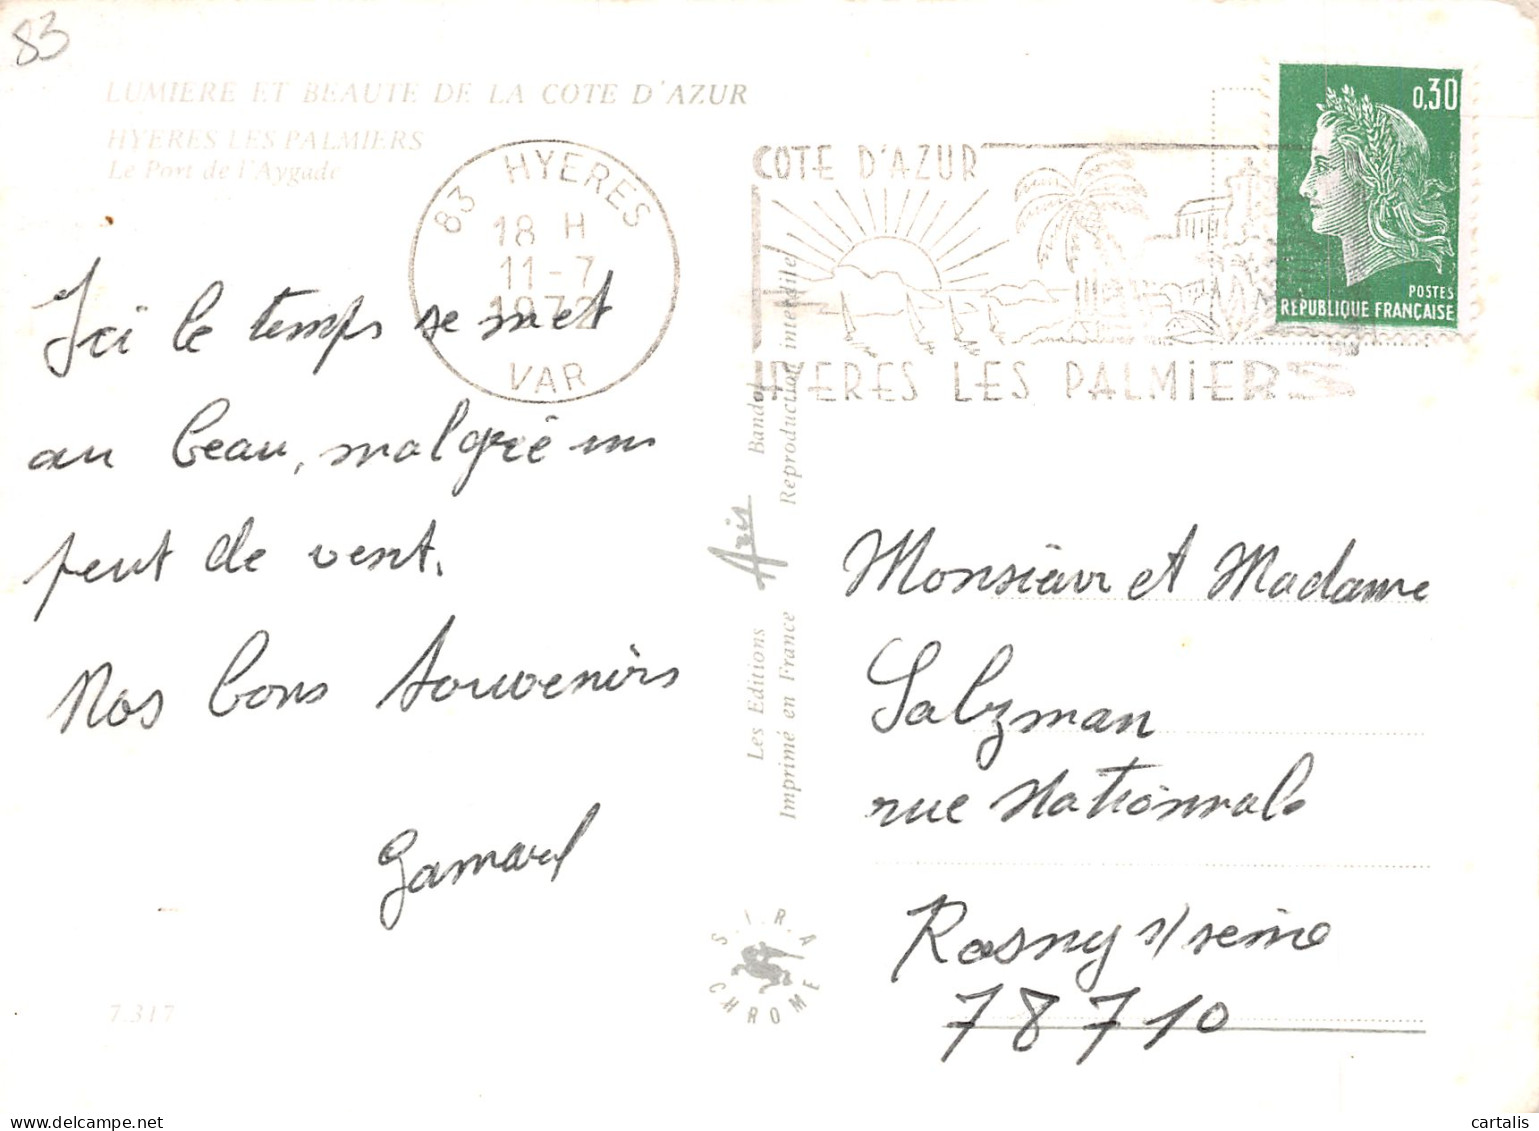 83
LUMIERE ET BEAUTE DE LA COTE D'AZUR
HYERES LES PALMIERS
Le Port de l'Aygade
83 HYERES
18 H
11-7
1972
VAR
COTE D'AZUR
HYERES LES PALMIERS
0,30
POSTES
REPUBLIQUE FRANÇAISE
Ici le temps se met
au beau, malgré un
peut de vent.
Nos bons souvenirs
Les Editions Aris Bandol
Imprimé en France Reproduction interdite
Monsieur et Madame
Salzman
rue Nationnale
Rosny s/seine
78710
S.I.R.A
CHROME
7.317
cartalis